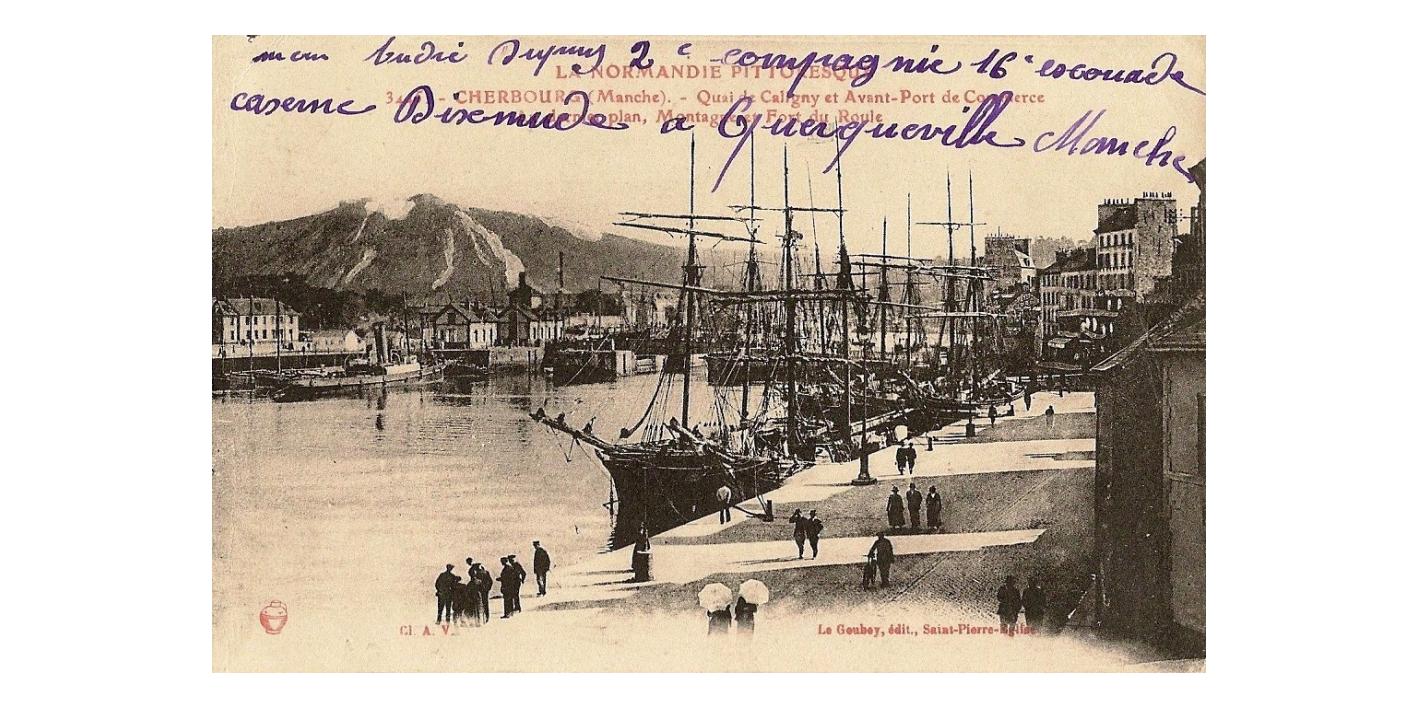 2e compagnie 16e escouade
LA NORMANDIE PITTORESQUE
CHERBOURG (Manche). - Quai de Caligny et Avant-Port de Commerce
caserne Dixmude a Querqueville Manche
plan, Montagne et Fort du Roule
Cl. A. V.
Le Goubey, édit., Saint-Pierre-Eglise